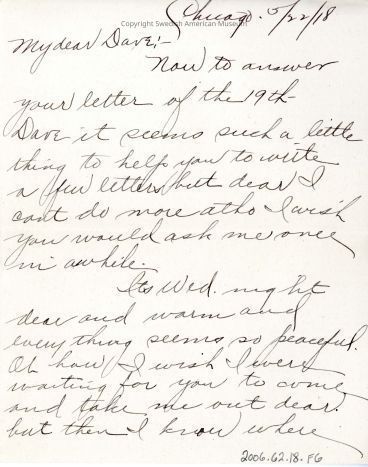 Copyright Swedish American Museum
Chicago. 5/22/18
My dear Dave:-
Now to answer
your letter of the 19th
Dave it seems such a little
thing to help you to write
a few letters but dear I
cant do more altho I wish
you would ask me once
in awhile.
Its Wed. night
dear and warm and
everything seems so peaceful.
Oh how I wish I were
waiting for you to come
and take me out dear.
but then I know where
2006.62.18.FG